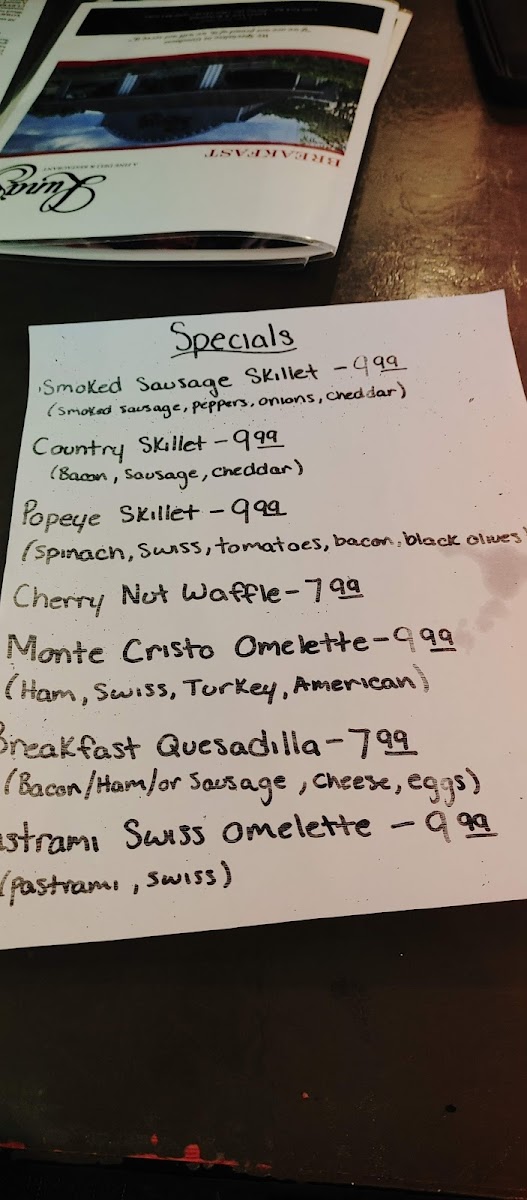 BREAKFAST
Specials
Smoked Sausage Skillet - 9 99
(Smoked sausage, peppers, onions, cheddar)
Country Skillet - 9 99
(Bacon, Sausage, cheddar)
Popeye Skillet - 9 99
(spinach, swiss, tomatoes, bacon, black olives)
Cherry Nut Waffle - 7 99
Monte Cristo Omelette - 9 99
(Ham, Swiss, Turkey, American)
Breakfast Quesadilla - 7 99
(Bacon/Ham/or Sausage, cheese, eggs)
astrami Swiss Omelette - 9 99
(pastrami, swiss)